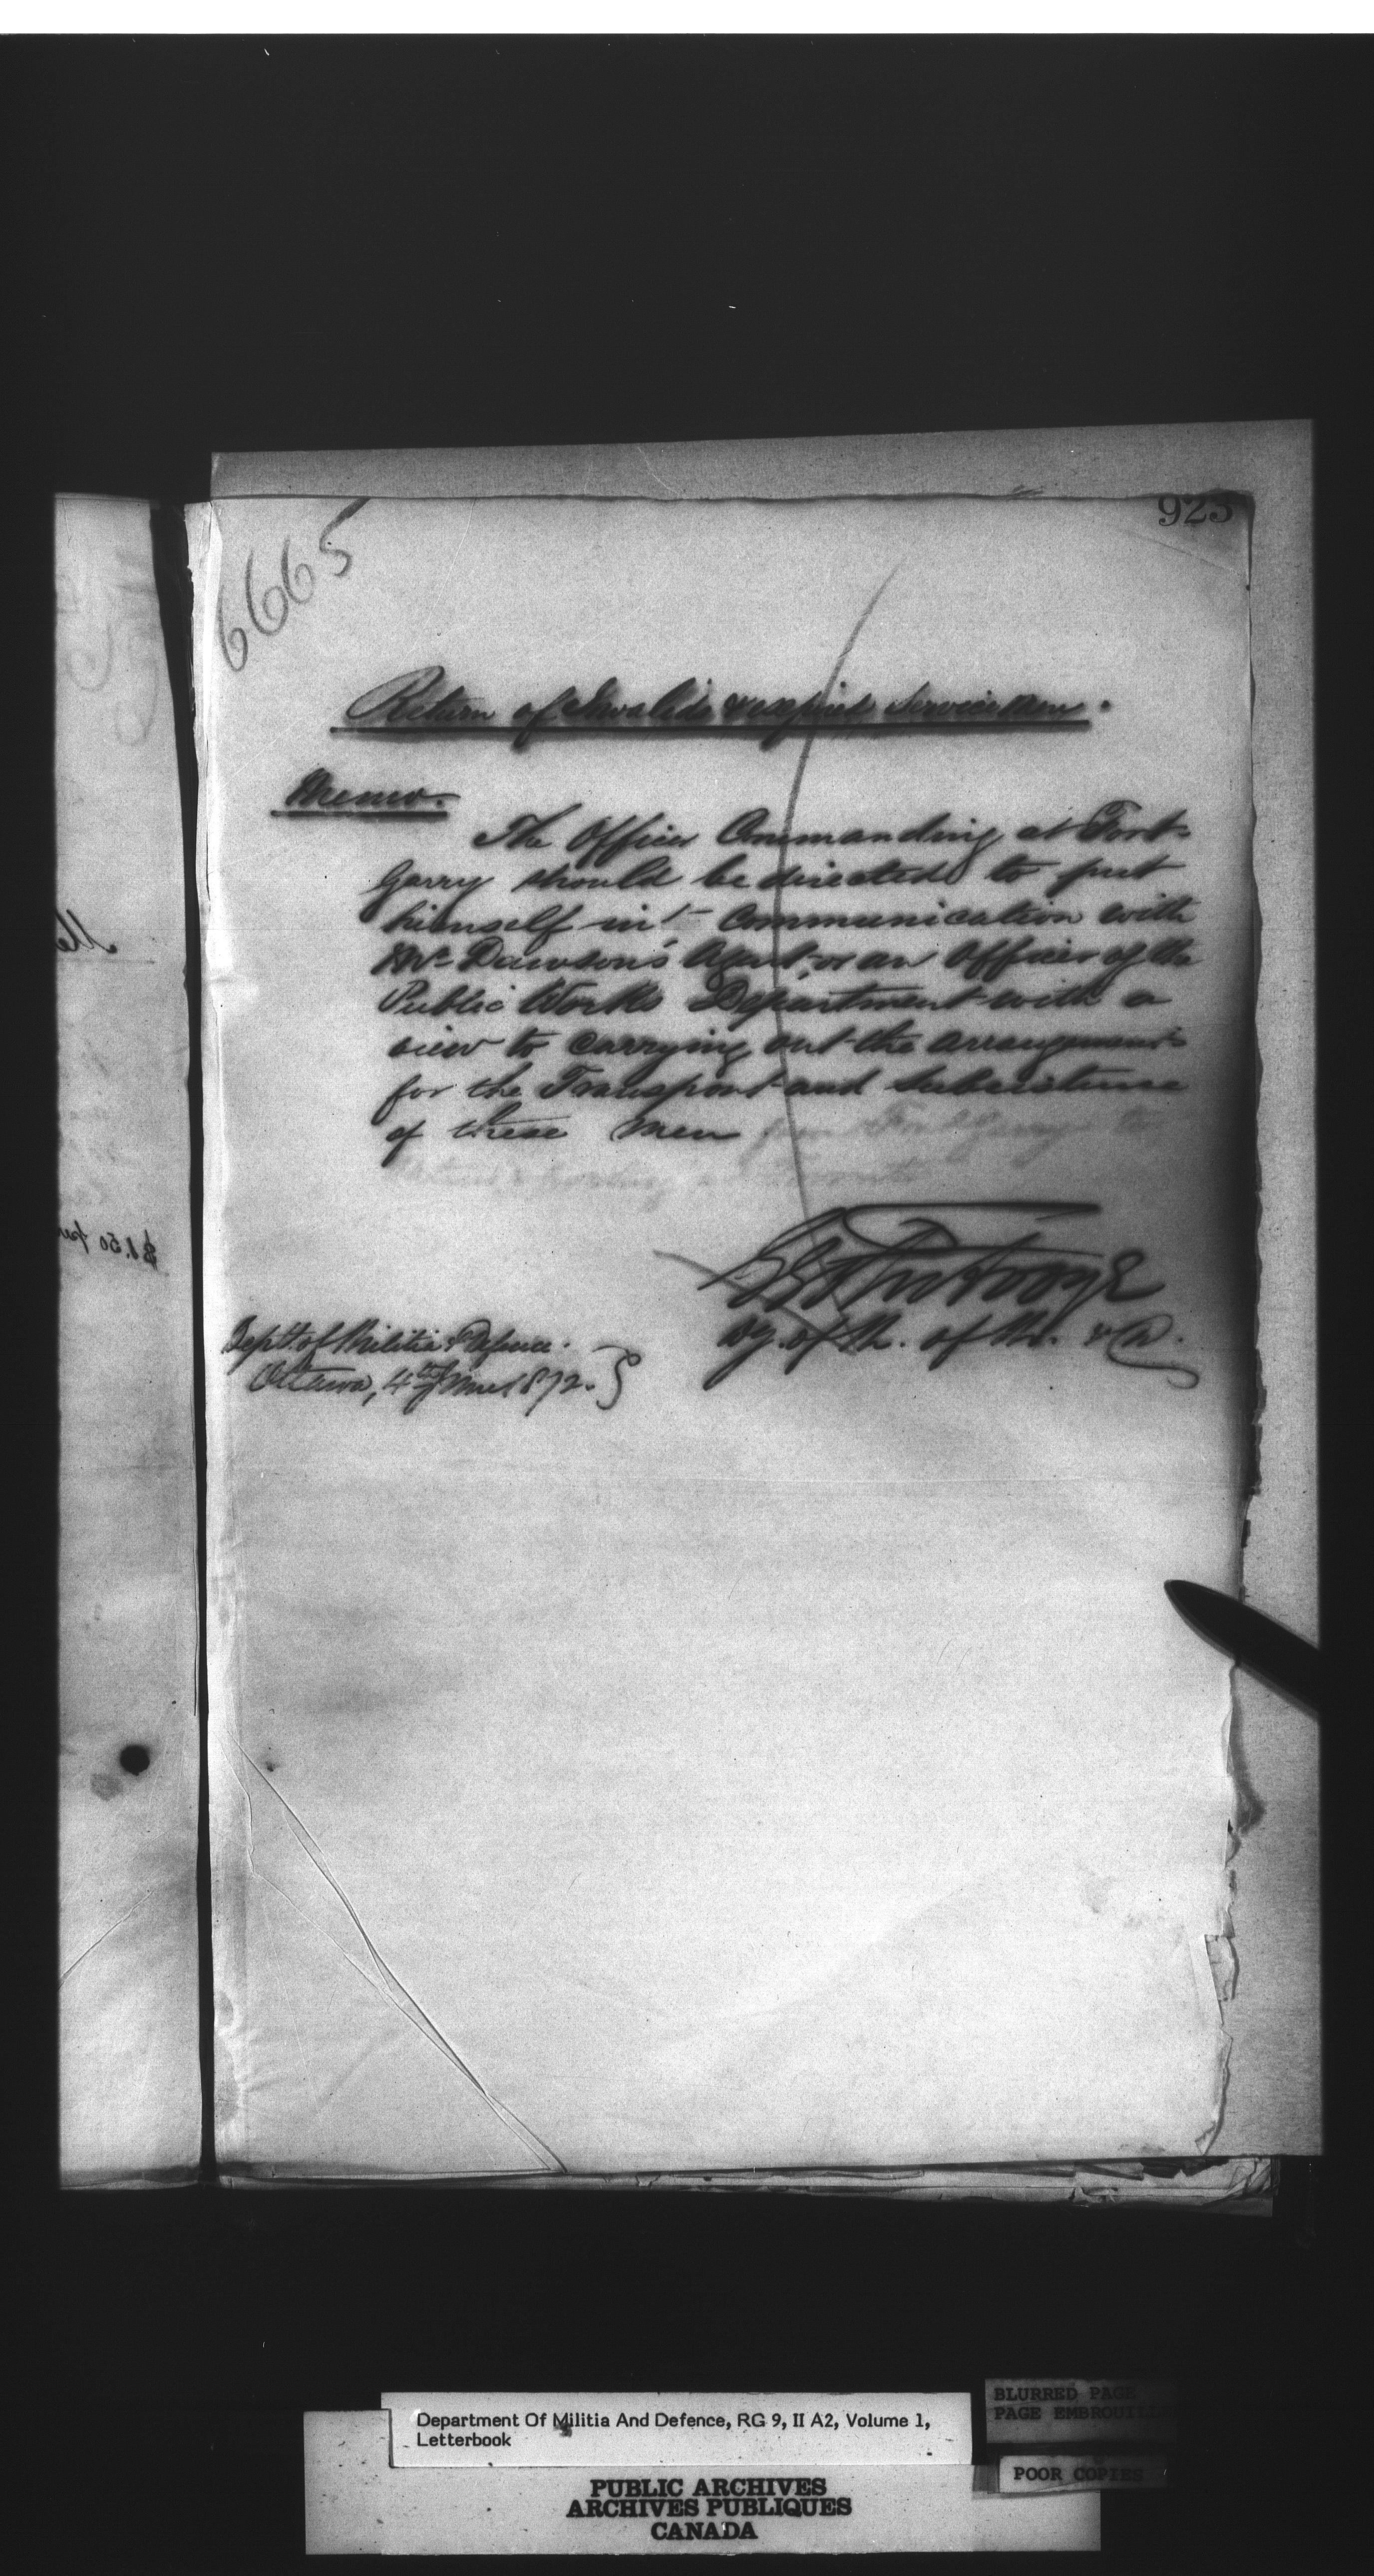 923
6665
Return of Invalids & expired Service Men.
Memo.
The Officer Commanding at Fort
Garry should be directed to put
himself in communication with
Mr Dawson's Agent, or an Officer of the
Public Works Department with a
view to carrying out the arrangements
for the Transport and Subsistence
of these men from Fort Garry to
D.M. of M. & D.
Dept. of Militia & Defence.
Ottawa, 4th 1872.
$1.50 per
Department Of Militia And Defence, RG 9, II A2, Volume 1,
Letterbook
BLURRED PAGE
PAGE
POOR COPIES
PUBLIC ARCHIVES
ARCHIVES PUBLIQUES
CANADA